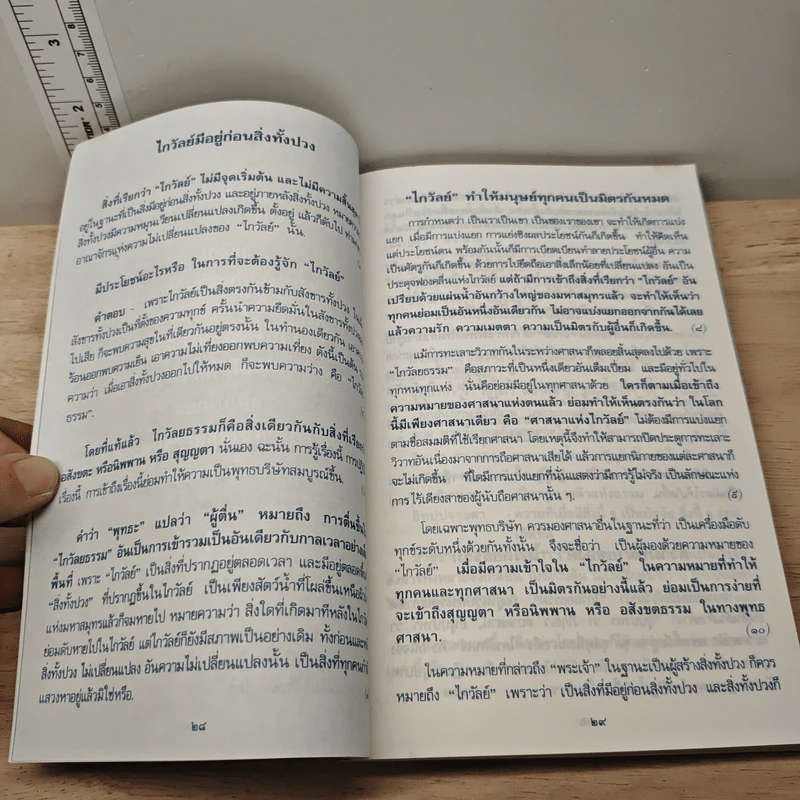 ไกวัลย์มีอยู่ก่อนสิ่งทั้งปวง
สิ่งที่เรียกว่า “ไกวัลย์” ไม่มีจุดเริ่มต้น และไม่มีความสิ้นสุด
อยู่ในฐานะที่เป็นสิ่งมีอยู่ก่อนสิ่งทั้งปวง และอยู่ภายหลังสิ่งทั้งปวง หมายความ
สิ่งทั้งปวงมีความหมุนเวียนเปลี่ยนแปลงเกิดขึ้น ตั้งอยู่ แล้วก็ดับไป
อาณาจักรแห่งความไม่เปลี่ยนแปลงของ “ไกวัลย์” นั้น.
มีประโยชน์อะไรหรือ ในการที่จะต้องรู้จัก “ไกวัลย์”
คำตอบ - เพราะไกวัลย์เป็นสิ่งตรงกันข้ามกับสังขารทั้งปวง
สังขารทั้งปวงเป็นที่ตั้งของความทุกข์ ครั้นนำความยึดมั่นในสังขารทั้งปวง
ไปเสีย ก็จะพบความสุขในที่เดียวกันอยู่ตรงนั้น ในทำนองเดียวกัน
ร้อนออกพบความเย็น เอาความไม่เที่ยงออกพบความเที่ยง ดังนี้เป็นต้น
ความว่า เมื่อเอาสิ่งทั้งปวงออกไปให้หมด ก็จะพบความว่าง คือ “ไกวัลย
ธรรม”.
โดยที่แท้แล้ว ไกวัลยธรรมก็คือสิ่งเดียวกันกับสิ่งที่เรียก
อสังขตะ หรือนิพพาน หรือ สุญญตา นั่นเอง ฉะนั้น การรู้เรื่องนี้
เรื่องนี้ การเข้าถึงเรื่องนี้ย่อมทำให้ความเป็นพุทธบริษัทสมบูรณ์ขึ้น.
คำว่า “พุทธะ” แปลว่า “ผู้ตื่น” หมายถึง การตื่นขึ้น
“ไกวัลยธรรม” อันเป็นการเข้ารวมเป็นอันเดียวกับกาลเวลาอย่าง
พื้นที่ เพราะ “ไกวัลย์” เป็นสิ่งที่ปรากฏอยู่ตลอดเวลา และมีอยู่ตลอด
“สิ่งทั้งปวง” ที่ปรากฏขึ้นในไกวัลย์ เป็นเพียงสัตว์น้ำที่โผล่ขึ้นเหนือ
แห่งมหาสมุทรแล้วก็จมหายไป หมายความว่า สิ่งใดที่เกิดมาทีหลังใน
ย่อมดับหายไปในไกวัลย์ แต่ไกวัลย์ก็ยังมีสภาพเป็นอย่างเดิม ทั้งก่อนและ
สิ่งทั้งปวง ไม่เปลี่ยนแปลง อันความไม่เปลี่ยนแปลงนั้น เป็นสิ่งที่ทุกคน
แสวงหาอยู่แล้วมิใช่หรือ.
๒๘
“ไกวัลย์” ทำให้มนุษย์ทุกคนเป็นมิตรกันหมด
การกำหนดว่า เป็นเราเป็นเขา เป็นของเราของเขา จะทำให้เกิดการแบ่ง
แยก เมื่อมีการแบ่งแยก การแย่งชิงผลประโยชน์กันก็เกิดขึ้น ทำให้คิดเห็น
แต่ประโยชน์ตน พร้อมกันนั้นก็มีการเบียดเบียนทำลายประโยชน์ผู้อื่น ความ
เป็นศัตรูกันก็เกิดขึ้น ด้วยการไปยึดถือเอาสิ่งเล็กน้อยที่เปลี่ยนแปลง อันเป็น
ประดุจฟองคลื่นแห่งไกวัลย์ แต่ถ้ามีการเข้าถึงสิ่งที่เรียกว่า “ไกวัลย์” อัน
เปรียบด้วยแผ่นน้ำอันกว้างใหญ่ของมหาสมุทรแล้ว จะทำให้เห็นว่า
ทุกคนย่อมเป็นอันหนึ่งอันเดียวกัน ไม่อาจแบ่งแยกออกจากกันได้เลย
แล้วความรัก ความเมตตา ความเป็นมิตรกับผู้อื่นก็เกิดขึ้น. (๘)
แม้การทะเลาะวิวาทกันในระหว่างศาสนาก็พลอยสิ้นสุดลงไปด้วย เพราะ
“ไกวัลยธรรม” คือสภาวะที่เป็นหนึ่งเดียวอันเต็มเปี่ยม และมีอยู่ทั่วไปใน
ทุกหนทุกแห่ง นั่นคือย่อมมีอยู่ในทุกศาสนาด้วย ใครก็ตามเมื่อเข้าถึง
ความหมายของศาสนาแห่งตนแล้ว ย่อมทำให้เห็นตรงกันว่า ในโลก
นี้มีเพียงศาสนาเดียว คือ “ศาสนาแห่งไกวัลย์” ไม่ต้องมีการแบ่งแยก
ตามชื่อสมมติที่ใช้เรียกศาสนา โดยเหตุนี้จึงทำให้สามารถปิดประตูการทะเลาะ
วิวาทอันเนื่องมาจากการถือศาสนาเสียได้ แล้วการแยกนิกายของแต่ละศาสนาก็
จะไม่เกิดขึ้น ที่ใดมีการแบ่งแยกที่นั่นแสดงว่ามีการรู้ไม่จริง เป็นลักษณะแห่ง
การไร้เดียงสาของผู้นับถือศาสนานั้น ๆ. (๙)
โดยเฉพาะพุทธบริษัท ควรมองศาสนาอื่นในฐานะที่ว่า เป็นเครื่องมือดับ
ทุกข์ระดับหนึ่งด้วยกันทั้งนั้น จึงจะชื่อว่า เป็นผู้มองด้วยความหมายของ
“ไกวัลย์” เมื่อมีความเข้าใจใน “ไกวัลย์” ในความหมายที่ทำให้
ทุกคนและทุกศาสนา เป็นมิตรกันอย่างนี้แล้ว ย่อมเป็นการง่ายที่
จะเข้าถึงสุญญตา หรือนิพพาน หรือ อสังขตธรรม ในทางพุทธ
ศาสนา. (๑๐)
ในความหมายที่กล่าวถึง “พระเจ้า” ในฐานะเป็นผู้สร้างสิ่งทั้งปวง ก็ควร
หมายถึง “ไกวัลย์” เพราะว่า เป็นสิ่งที่มีอยู่ก่อนสิ่งทั้งปวง และสิ่งทั้งปวงก็
๒๙